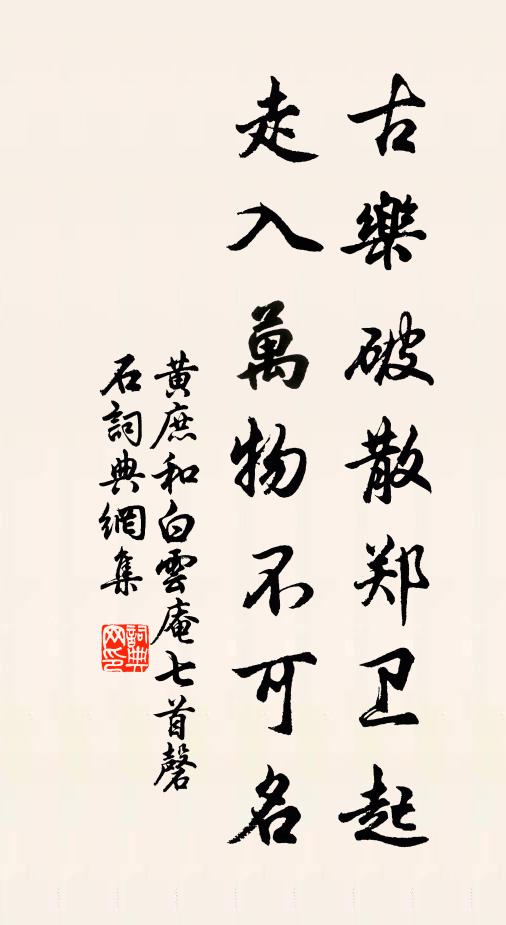 古樂破散郑卫起
走入萬物不可名
黃庶和白雲庵七首磬
石詞典網集
詞典
网印